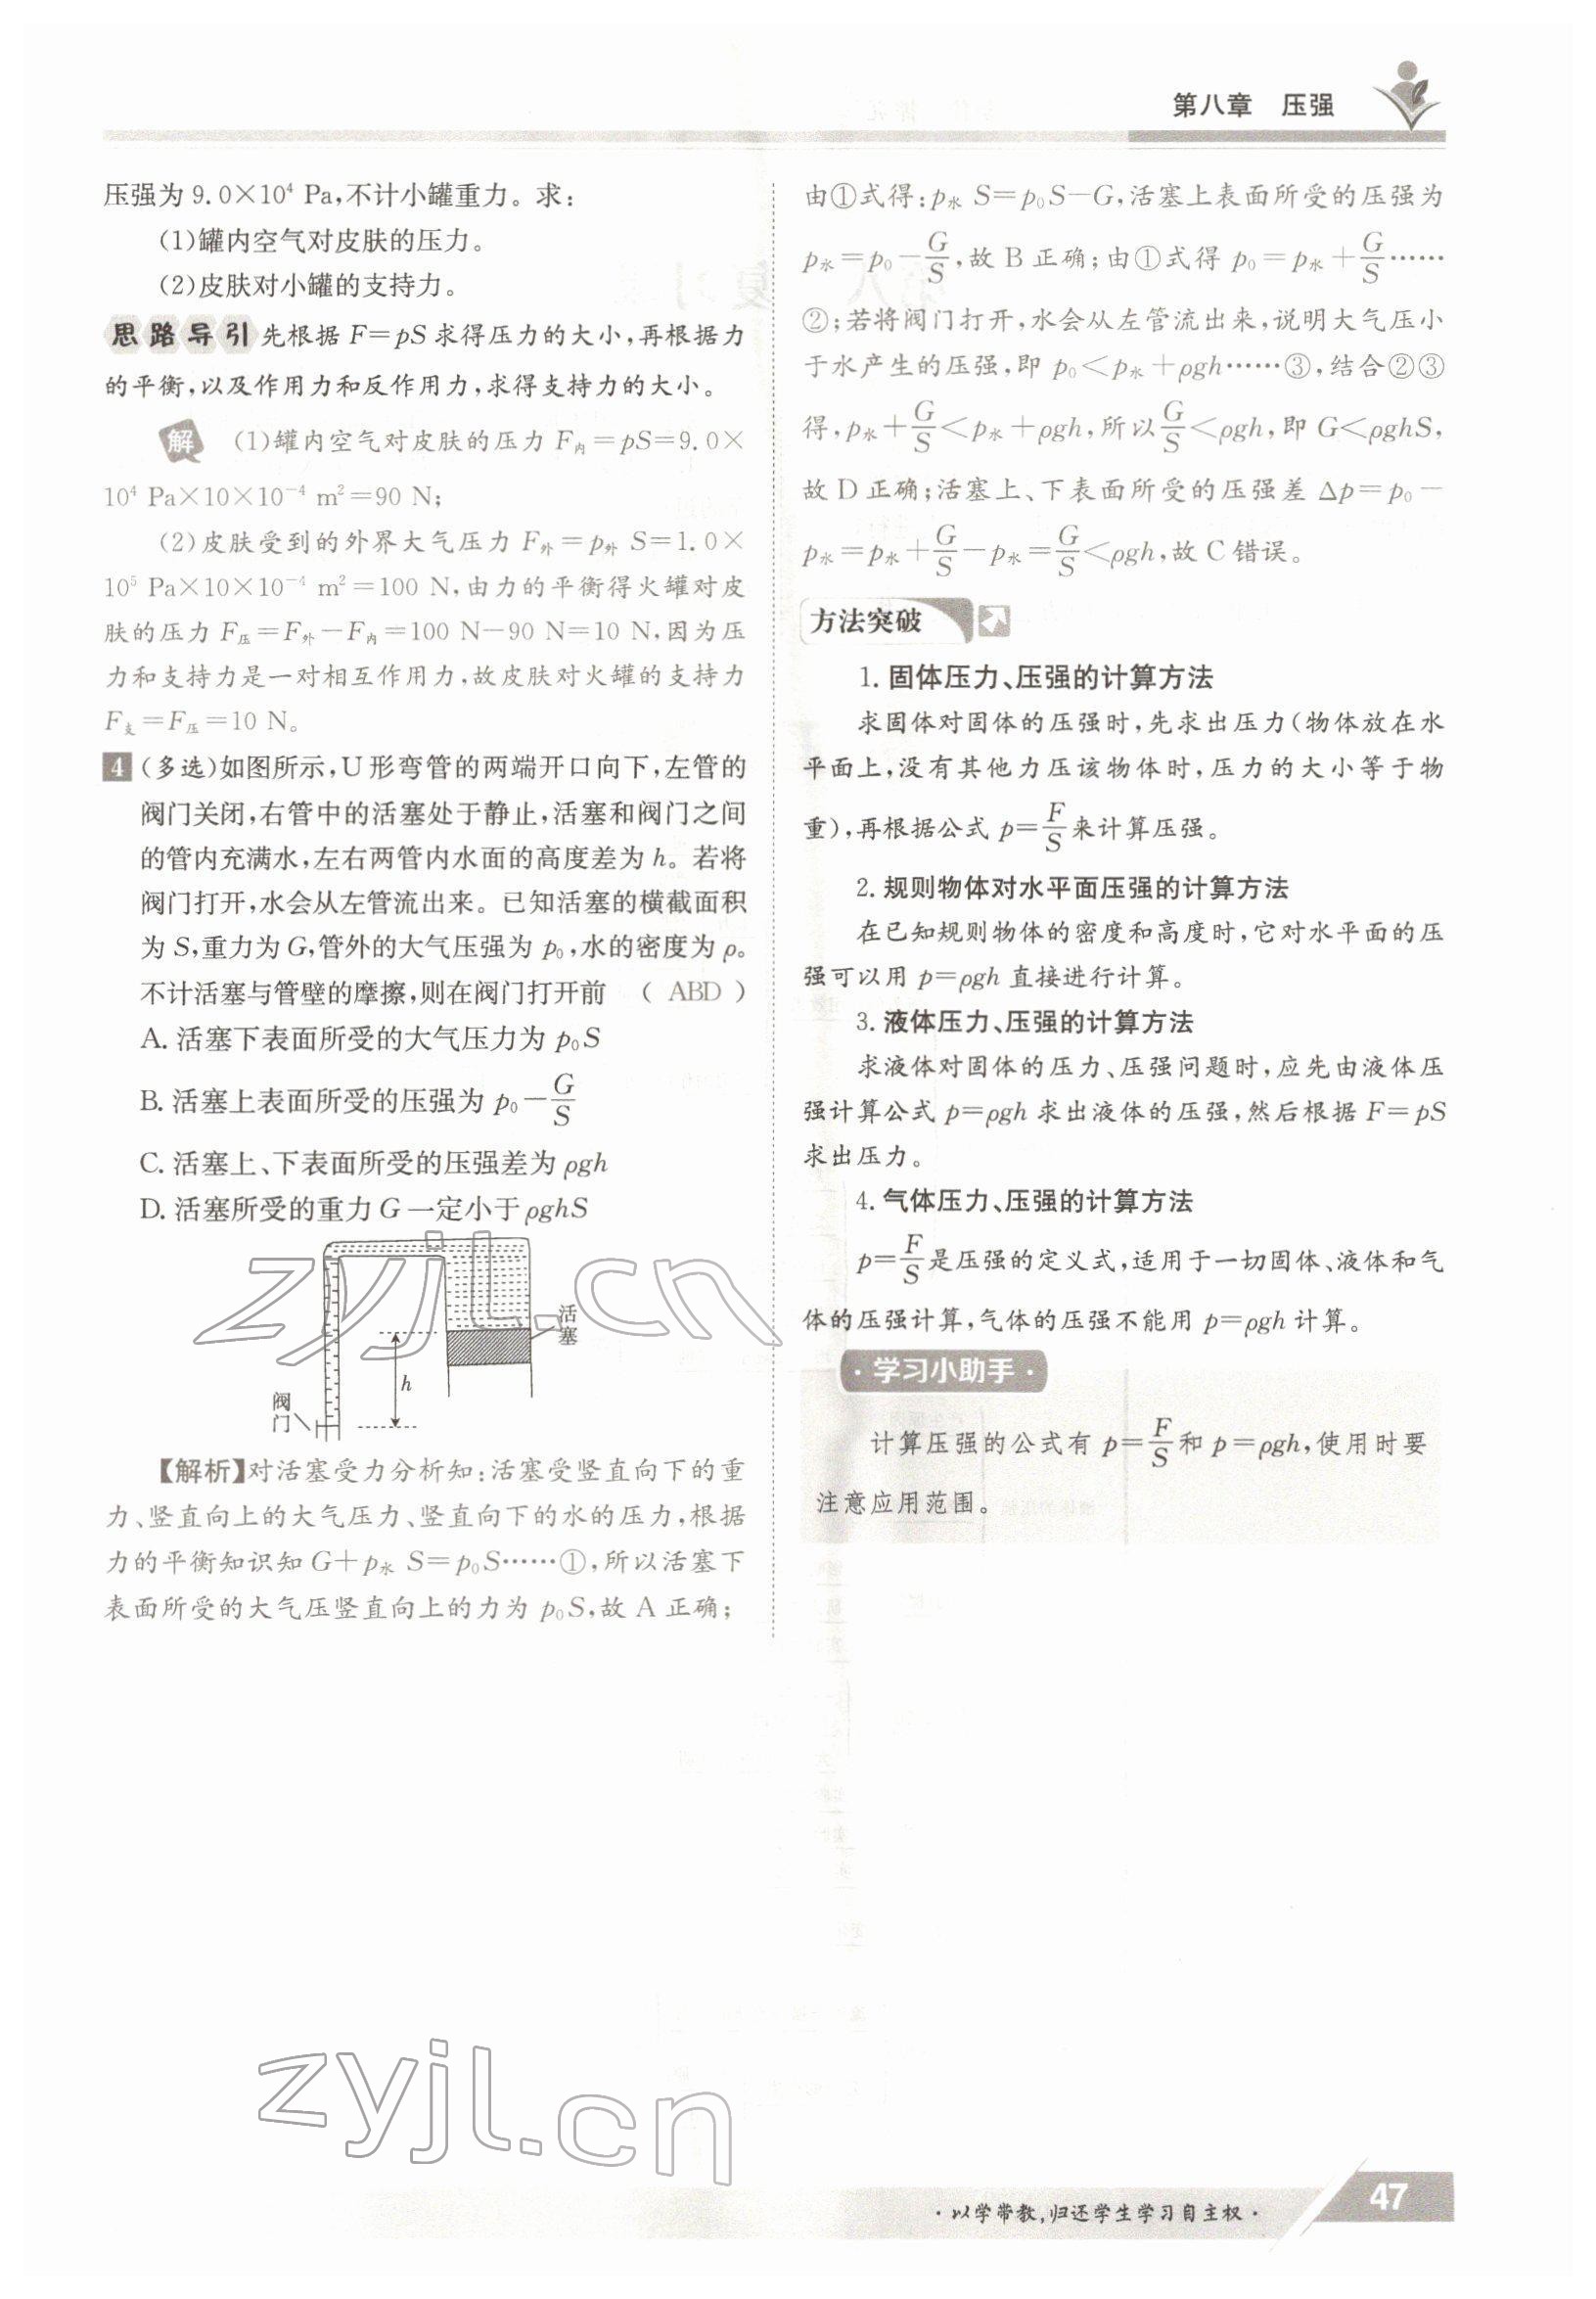 第八章 压强
压强为 9.0×10⁴ Pa,不计小罐重力。求:
(1)罐内空气对皮肤的压力。
(2)皮肤对小罐的支持力。
思路导引 先根据 F=pS 求得压力的大小,再根据力
的平衡,以及作用力和反作用力,求得支持力的大小。
解 (1)罐内空气对皮肤的压力 F内=pS=9.0×
10⁴ Pa×10×10⁻⁴ m²=90 N;
(2)皮肤受到的外界大气压力 F外=p外 S=1.0×
10⁵ Pa×10×10⁻⁴ m²=100 N,由力的平衡得火罐对皮
肤的压力 F压=F外-F内=100 N-90 N=10 N,因为压
力和支持力是一对相互作用力,故皮肤对火罐的支持力
F支=F压=10 N。
4 (多选)如图所示,U 形弯管的两端开口向下,左管的
阀门关闭,右管中的活塞处于静止,活塞和阀门之间
的管内充满水,左右两管内水面的高度差为 h。若将
阀门打开,水会从左管流出来。已知活塞的横截面积
为 S,重力为 G,管外的大气压强为 p₀,水的密度为 ρ。
不计活塞与管壁的摩擦,则在阀门打开前 ( ABD )
A. 活塞下表面所受的大气压力为 p₀S
B. 活塞上表面所受的压强为 p₀-G/S
C. 活塞上、下表面所受的压强差为 ρgh
D. 活塞所受的重力 G 一定小于 ρghS
活塞
h
阀门
【解析】对活塞受力分析知:活塞受竖直向下的重
力、竖直向上的大气压力、竖直向下的水的压力,根据
力的平衡知识知 G+p水 S=p₀S……①,所以活塞下
表面所受的大气压竖直向上的力为 p₀S,故 A 正确;
由①式得:p水 S=p₀S-G,活塞上表面所受的压强为
p水=p₀-G/S,故 B 正确;由①式得 p₀=p水+G/S……
②;若将阀门打开,水会从左管流出来,说明大气压小
于水产生的压强,即 p₀<p水+ρgh……③,结合②③
得,p水+G/S<p水+ρgh,所以G/S<ρgh,即 G<ρghS,
故 D 正确;活塞上、下表面所受的压强差 Δp=p₀-
p水=p水+G/S-p水=G/S<ρgh,故 C 错误。
方法突破
1. 固体压力、压强的计算方法
求固体对固体的压强时,先求出压力(物体放在水
平面上,没有其他力压该物体时,压力的大小等于物
重),再根据公式 p=F/S来计算压强。
2. 规则物体对水平面压强的计算方法
在已知规则物体的密度和高度时,它对水平面的压
强可以用 p=ρgh 直接进行计算。
3. 液体压力、压强的计算方法
求液体对固体的压力、压强问题时,应先由液体压
强计算公式 p=ρgh 求出液体的压强,然后根据 F=pS
求出压力。
4. 气体压力、压强的计算方法
p=F/S是压强的定义式,适用于一切固体、液体和气
体的压强计算,气体的压强不能用 p=ρgh 计算。
·学习小助手·
计算压强的公式有 p=F/S和 p=ρgh,使用时要
注意应用范围。
zyjl.cn
zyjl.cn
·以学带教,归还学生学习自主权·
47